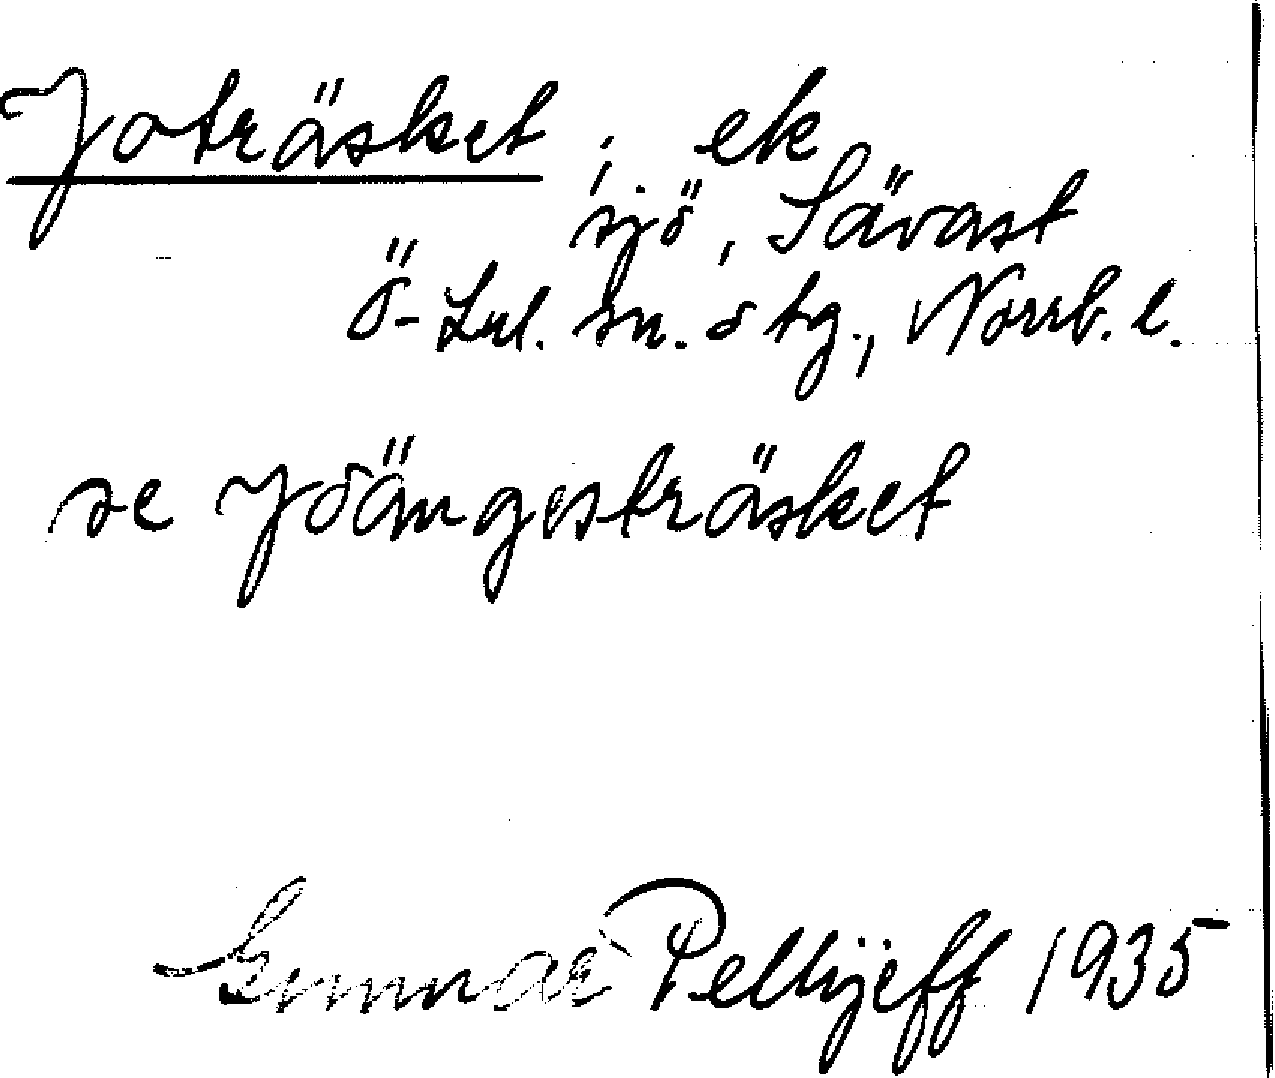 Joträsket, ek
sjö, Sävast
Ö-Lul. sn. o tg., Norrb. l.
se Joängesträsket
Gunnar Pellijeff 1935